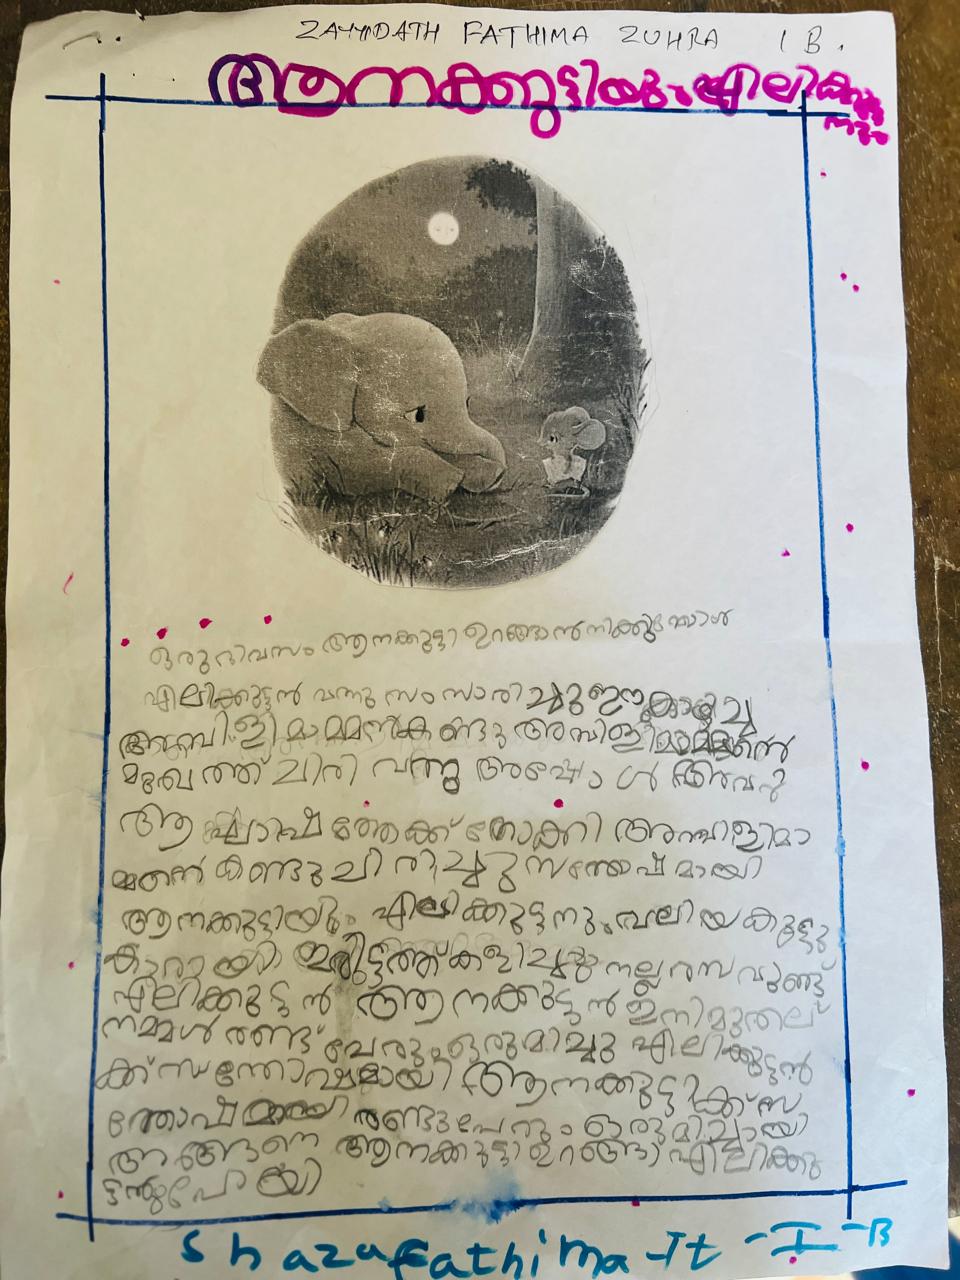 ZAYYIDATH FATHIMA ZUHRA 1 B.
ആനക്കുട്ടിയും എലിക്കുട്ട
നും
ഒരു ദിവസം ആനക്കുട്ടി ഉറങ്ങാൻ നിക്കുമ്പോൾ
എലിക്കുട്ടൻ വന്നു സംസാരിച്ചു ഈ
അമ്പിളി മാമനെ കണ്ടു അമ്പിളിമാമന്റെ
മുഖത്ത് ചിരി വന്നു അപ്പോൾ അവർ
ആ തേക്ക് നോക്കി അമ്പിളിമാ
മനെ കണ്ടു ചിരിച്ചു സന്തേഷമായി
ആനക്കുട്ടിയും എലിക്കുട്ടനും വലിയ കുട്ടു
കാരായി ഇരുട്ടത്ത് കളിച്ചു നല്ല രസവുണ്ട്
എലിക്കുട്ടൻ ആനക്കുട്ടൻ ഇനിമുതല്
നമ്മൾ രണ്ട് പേരും ഒരുമിച്ചു എലിക്കുട്ടൻ
ക്ക് സന്തോഷമായി ആനക്കുട്ടിക്ക് സ
ന്തോഷമായി രണ്ടുപേരും ഒരുമിച്ചായി
അങ്ങനെ ആനക്കുട്ടി ഉറങ്ങി എലിക്കു
ട്ടനും പോയി
Shaza fathima-It - I - B